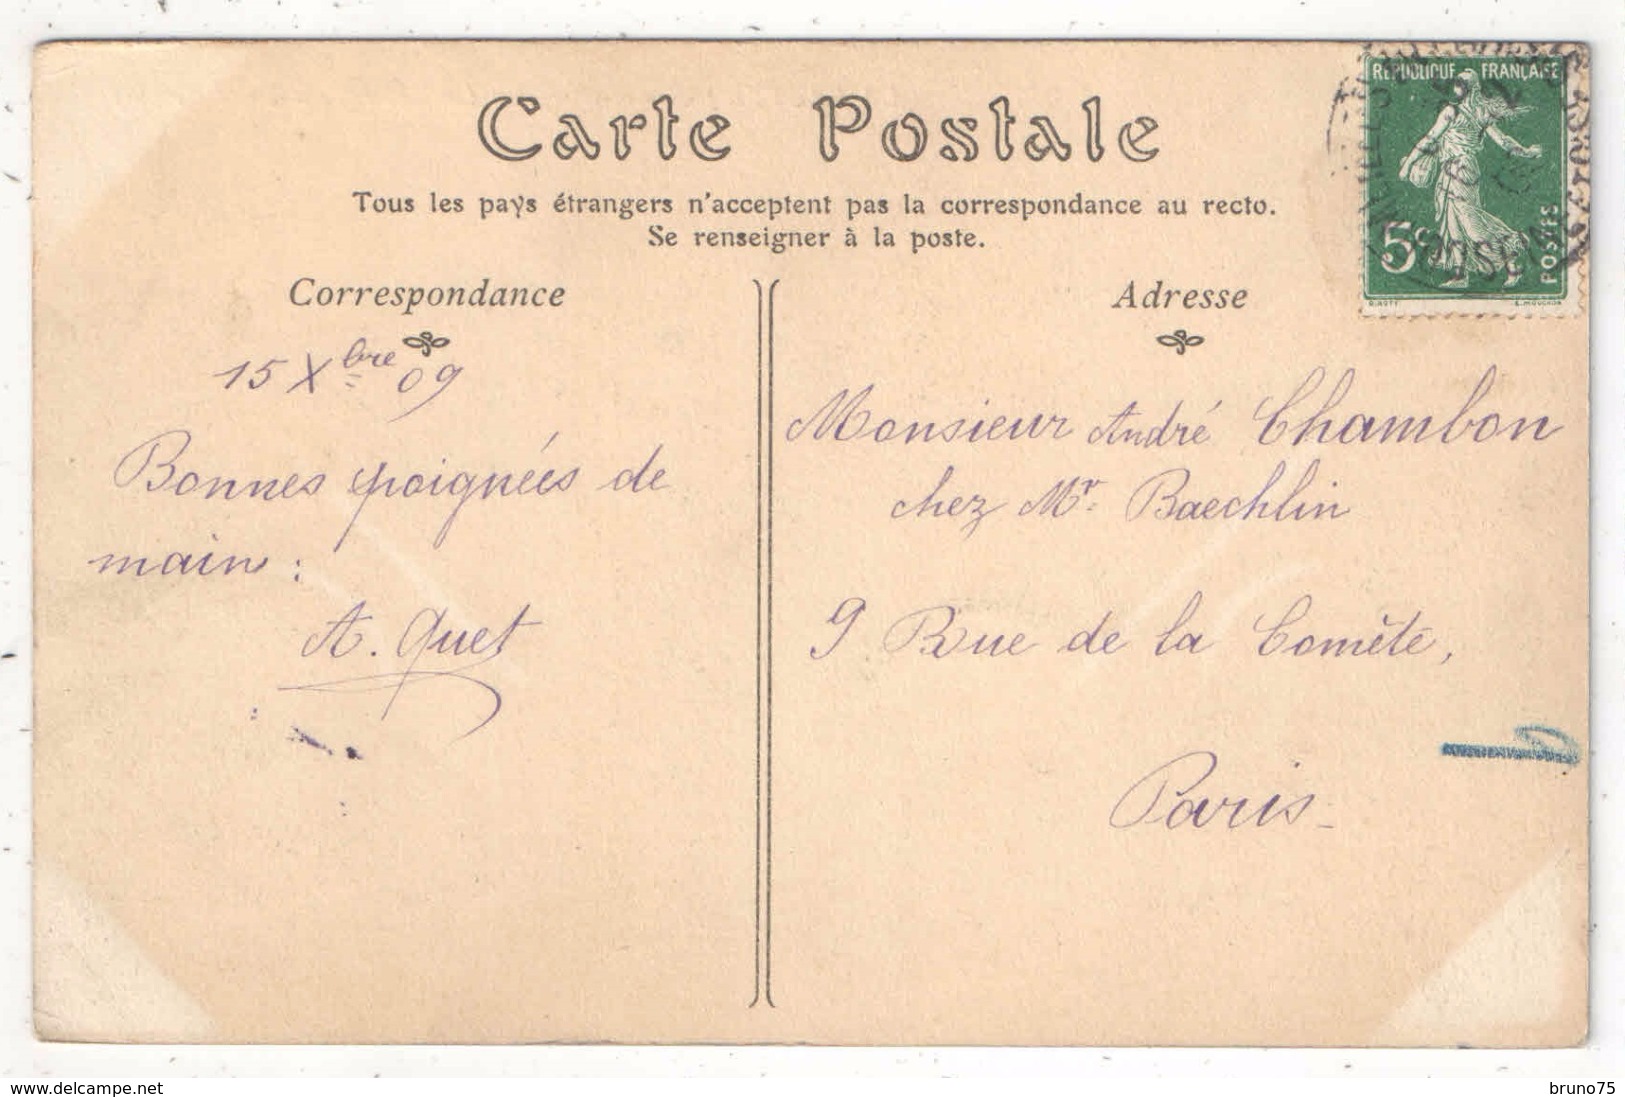 Carte Postale
Tous les pays étrangers n'acceptent pas la correspondance au recto.
Se renseigner à la poste.
Correspondance
15 Xbre 09
Bonnes poignées de
main :
A. Quet
Adresse
Monsieur André Chambon
chez Mr. Baechlin
9 Rue de la Comète,
Paris -
REPUBLIQUE FRANÇAISE
5c
POSTES
O. ROTY
E. MOUCHON
www.delcampe.net
bruno75